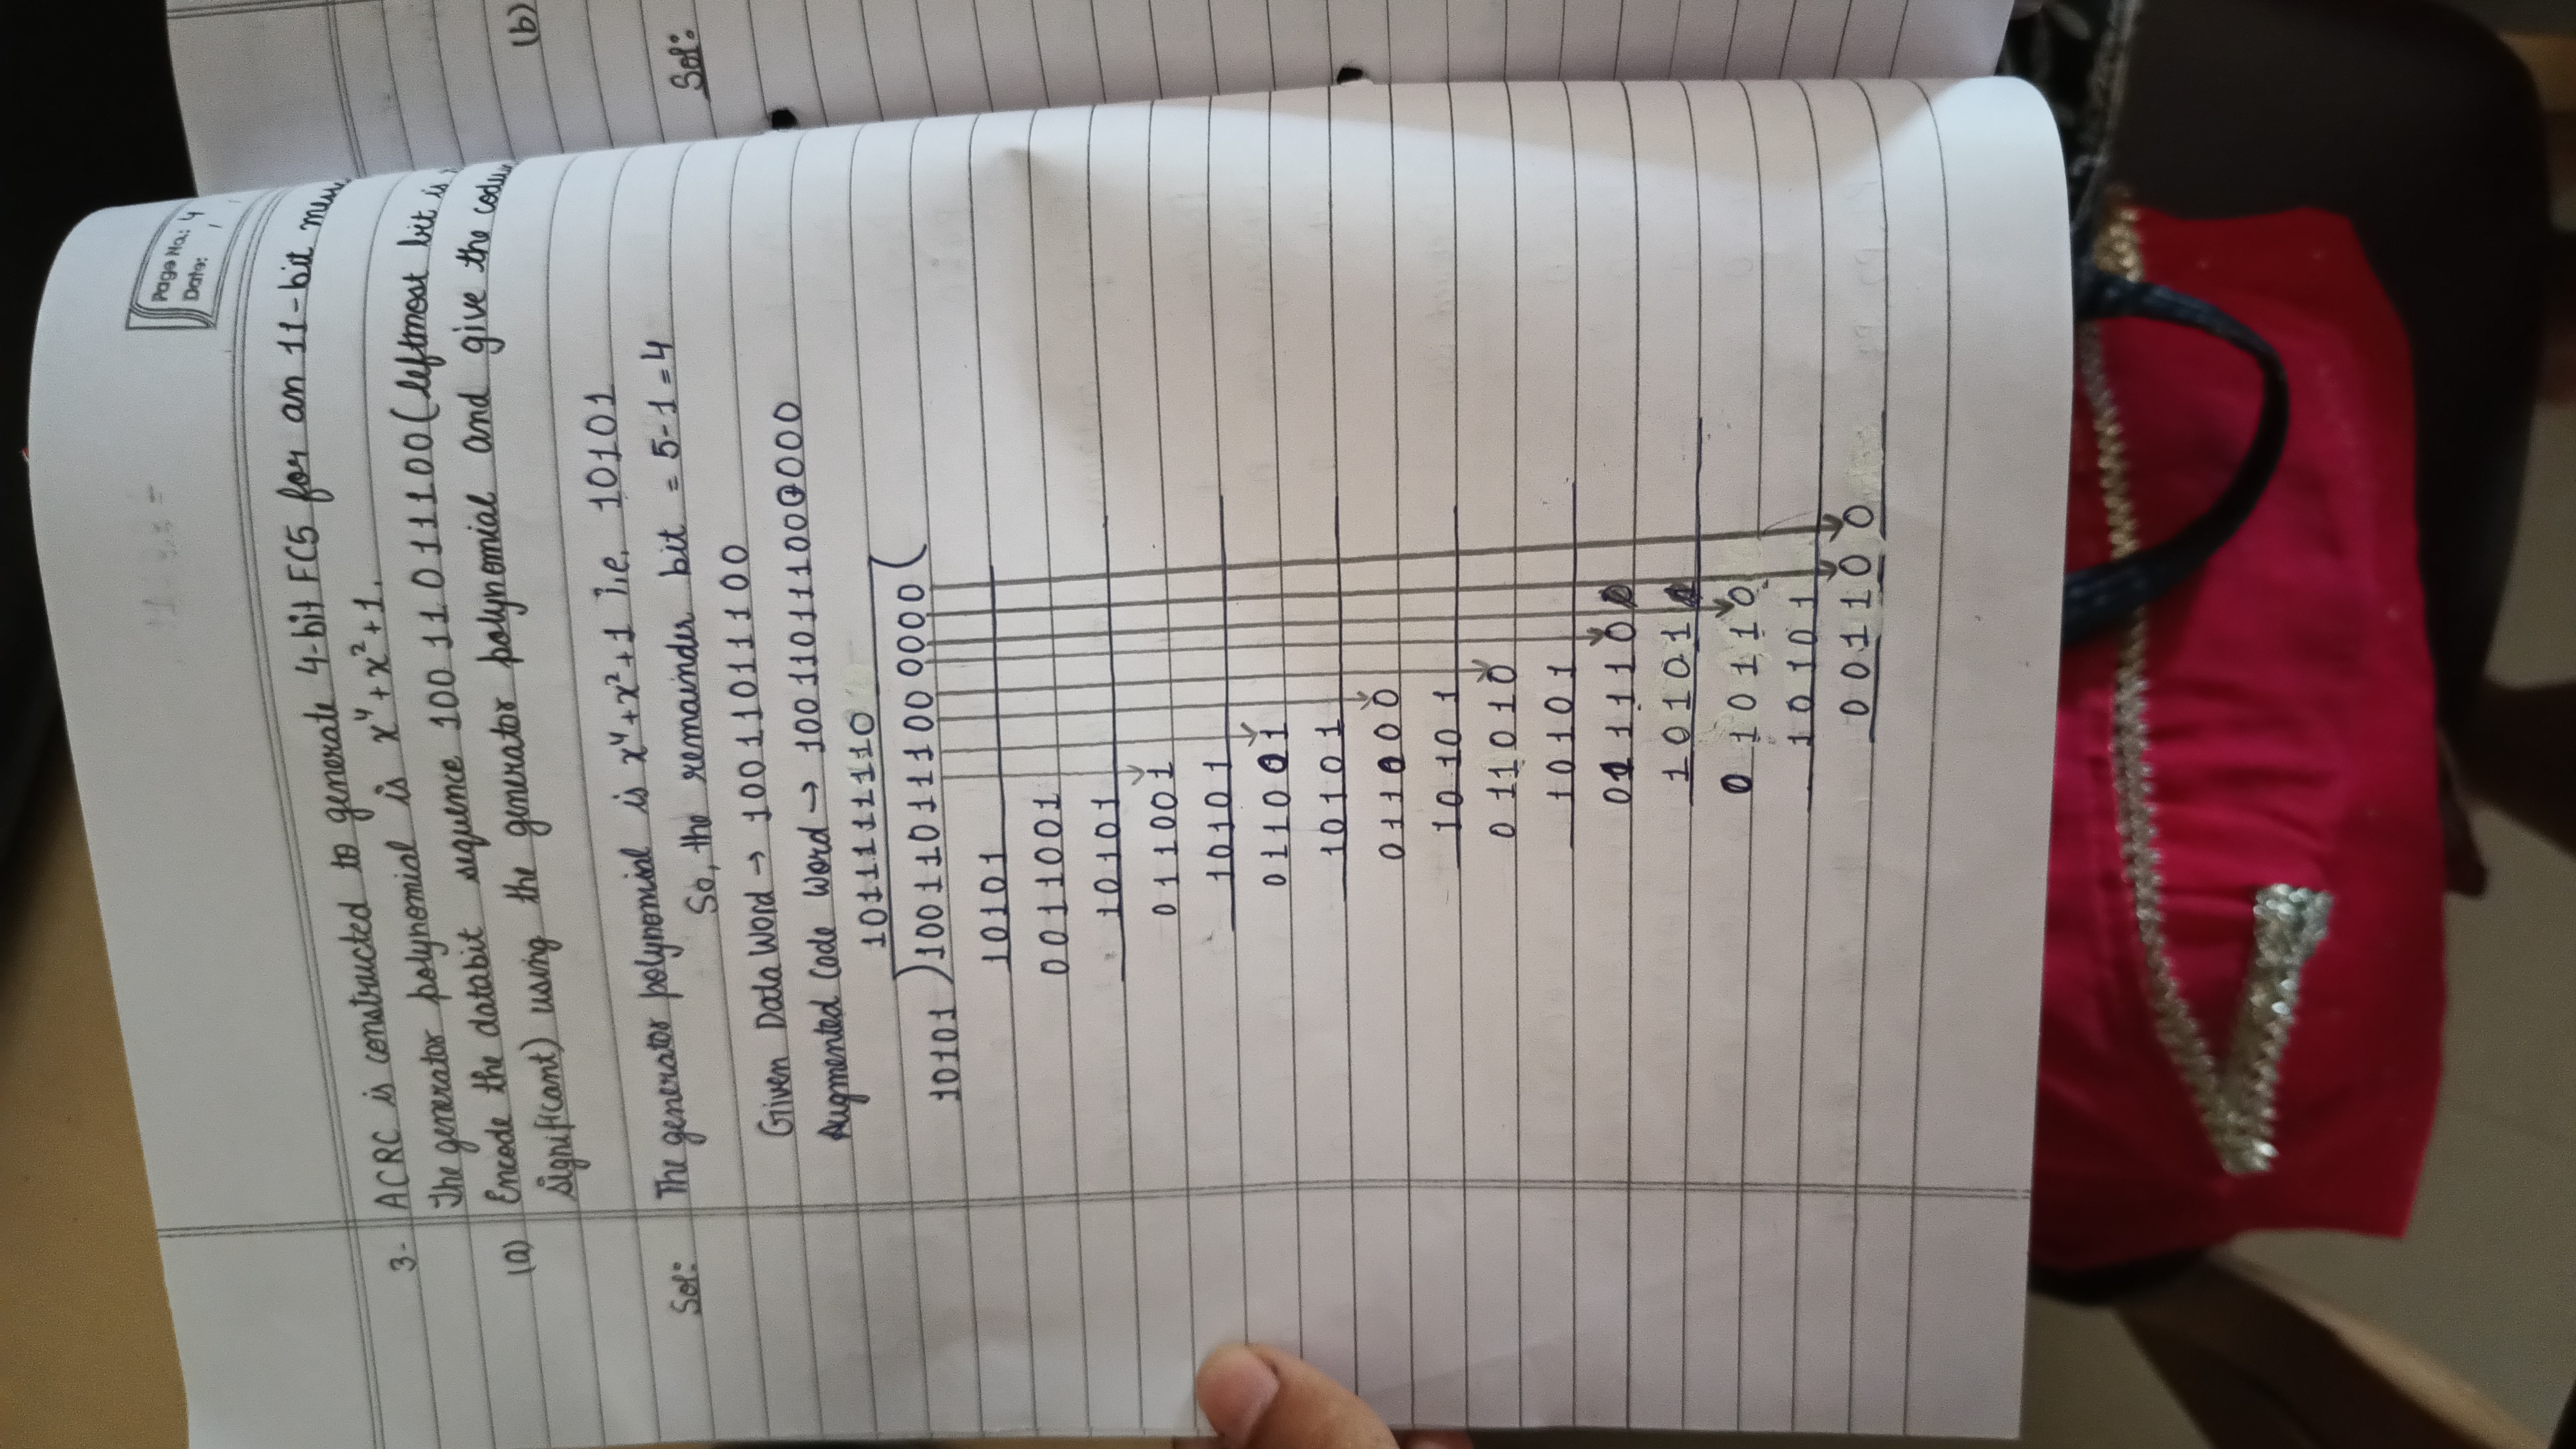 Page No.: 4
Date: /
3- ACRC is constructed to generate 4-bit FCS for an 11-bit
The generator polynomial is x⁴+x²+1.
(a) Encode the databit sequence 10011011100 (leftmost bit is
significant) using the generator polynomial and give the
Sol: The generator polynomial is x⁴+x²+1 i.e. 10101
So, the remainder bit = 5-1=4
Given Data Word → 10011011100
Augmented Code Word → 100110111000000
1011111110
10101 )100110111000000(
10101
0011001
10101
011001
10101
011001
10101
011000
10101
011010
10101
011110
10101
010110
10101
001100
(b)
Sol: